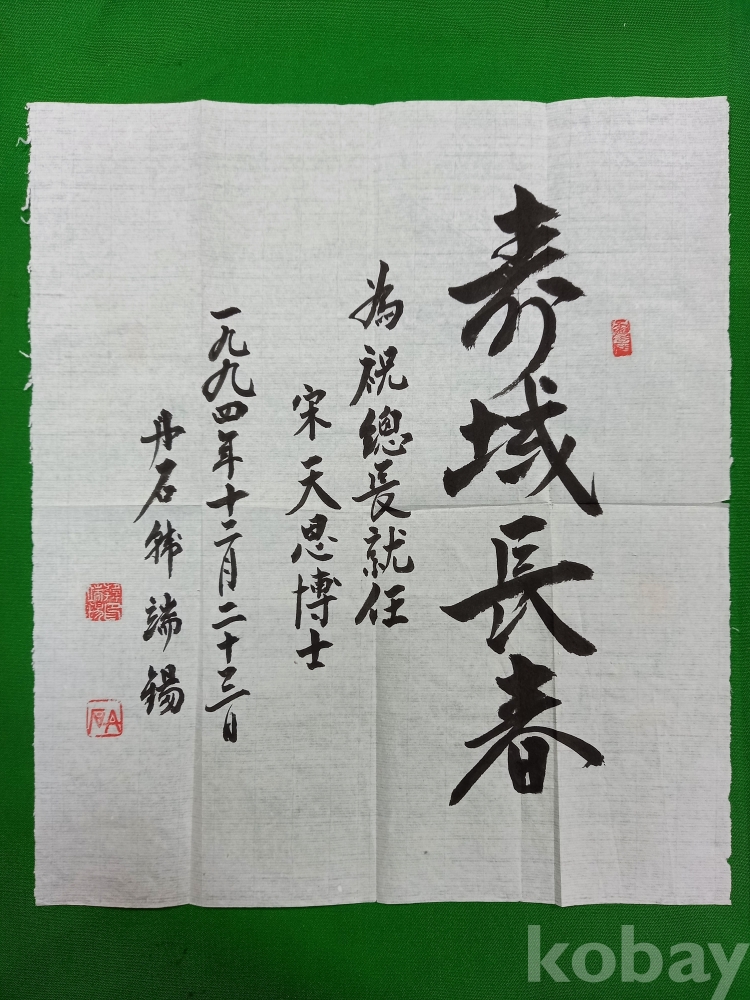 寿域長春
為祝總長就任
宋天恩博士
一九九四年十二月二十三日
丹石韩端錫
kobay